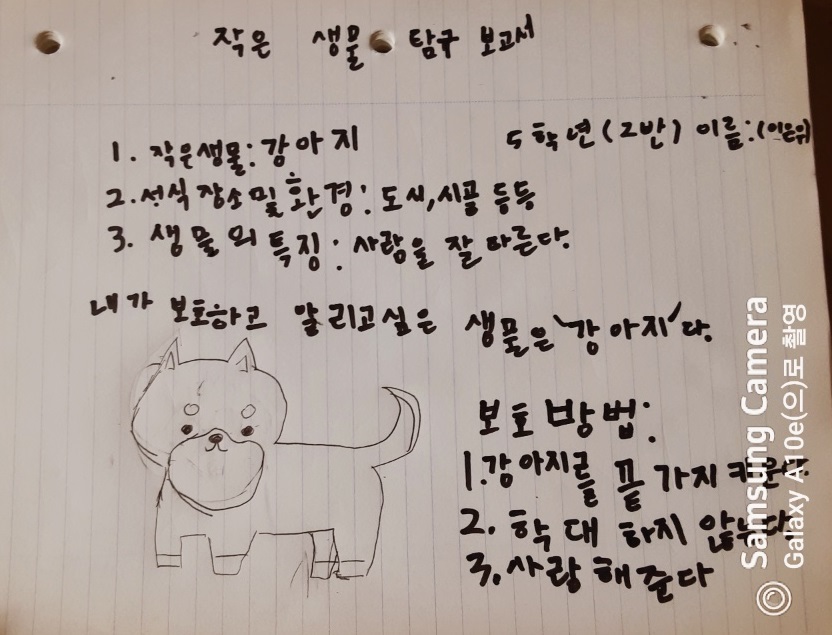 작은 생물 탐구 보고서
5학년(2반) 이름:(이은위)
1. 작은생물: 강아지
2. 서식 장소 및 환경: 도시,시골 등등
3. 생물의 특징: 사람을 잘 따른다.
내가 보호하고 알리고싶은 생물은 '강아지'다.
보호 방법:
1.강아지를 끝 가지 키운다.
2. 학대 하지 않는다
3. 사랑해준다
Samsung Camera
Galaxy A10e(으)로 촬영